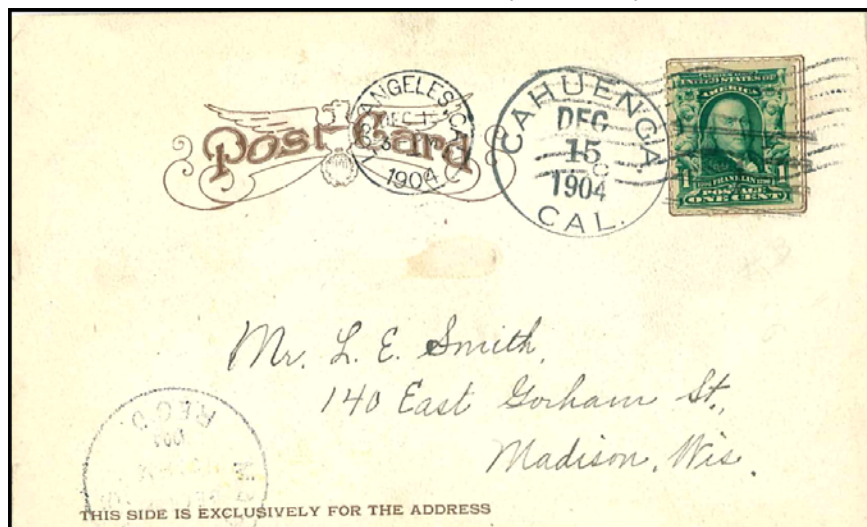 Post Card
ANGELES, CA
1904
CAHUENGA
DEC
15
1904
CAL.
UNITED STATES OF
AMERICA
1 FRANKLIN 1
POSTAGE
ONE CENT
Mr. L. E. Smith,
140 East Gorham St.,
Madison, Wis.
REC'D.
THIS SIDE IS EXCLUSIVELY FOR THE ADDRESS